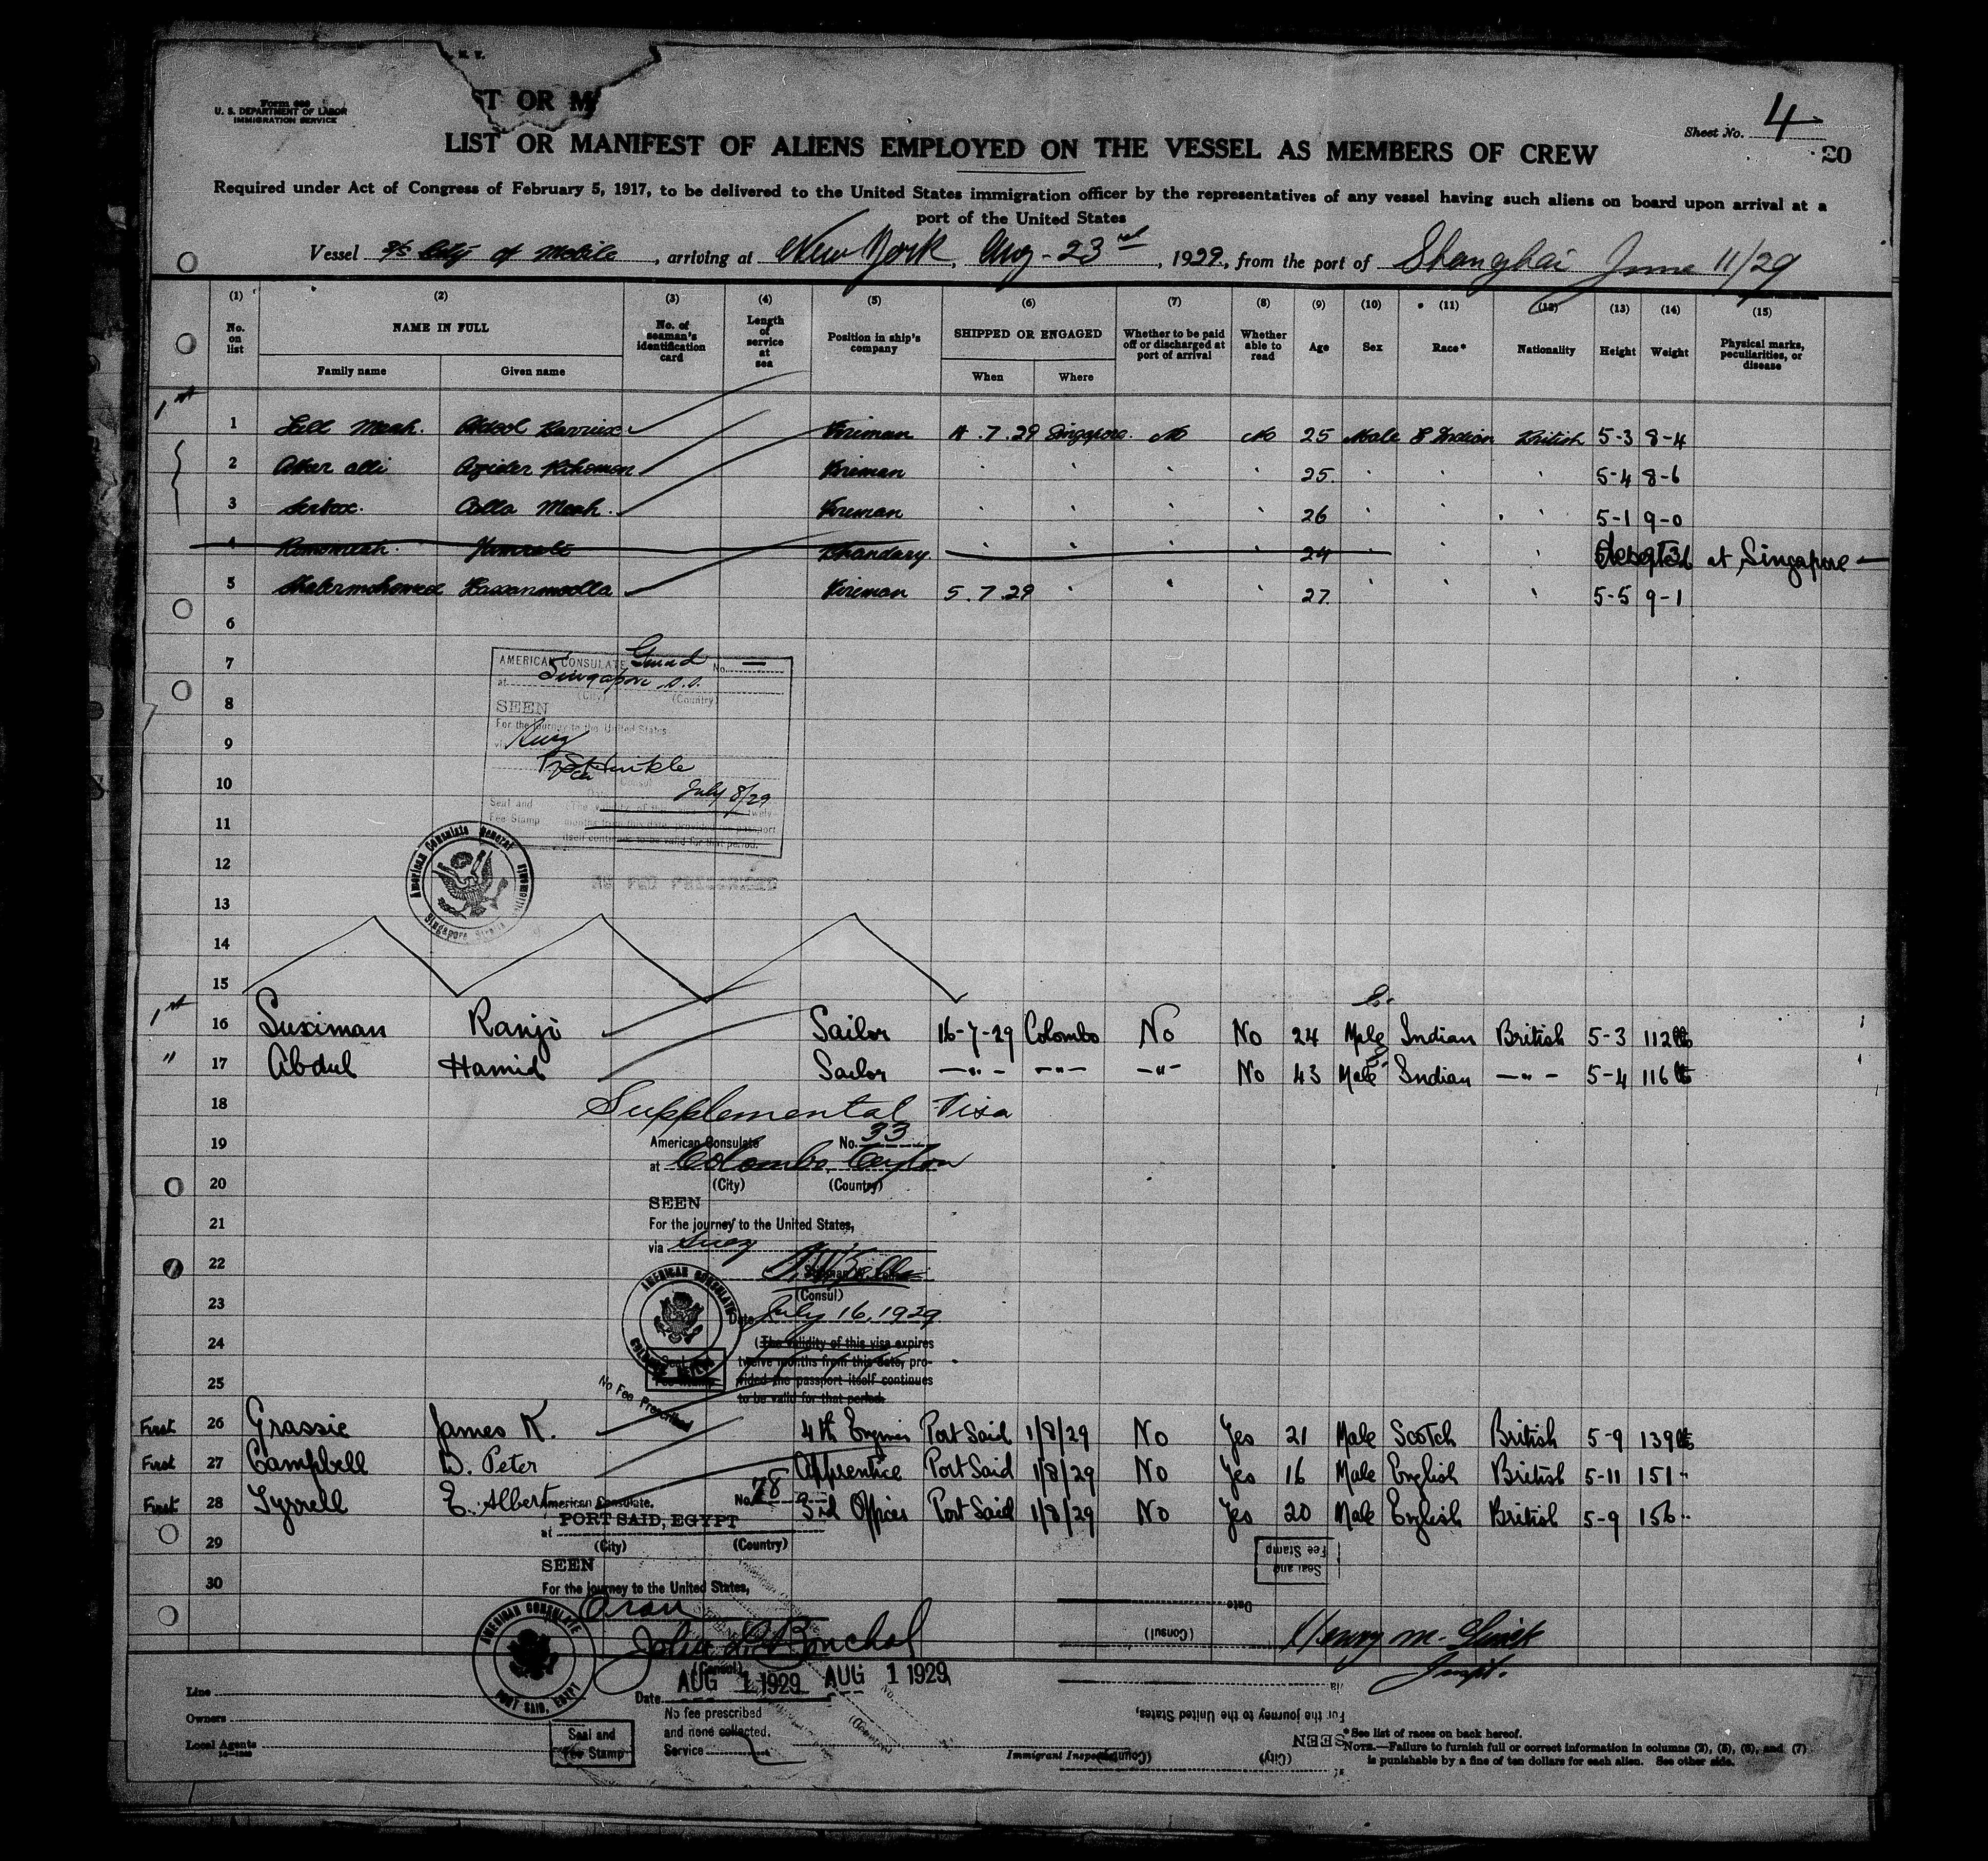 N. Y.
ST OR MA
Form 689
U. S. DEPARTMENT OF LABOR
IMMIGRATION SERVICE
Sheet No. 4
20
LIST OR MANIFEST OF ALIENS EMPLOYED ON THE VESSEL AS MEMBERS OF CREW
Required under Act of Congress of February 5, 1917, to be delivered to the United States immigration officer by the representatives of any vessel having such aliens on board upon arrival at a
port of the United States
Vessel S/S City of Mobile, arriving at New York, Aug-23rd, 1929, from the port of Shanghai June 11/29
(1) (2) (3) (4) (5) (6) (7) (8) (9) (10) (11) (12) (13) (14) (15)
No. on list NAME IN FULL No. of seaman's identification card Length of service at sea Position in ship's company SHIPPED OR ENGAGED Whether to be paid off or discharged at port of arrival Whether able to read Age Sex Race* Nationality Height Weight Physical marks, peculiarities, or disease
Family name Given name When Where
1st
1 Meah. Abdool Fireman 7.29 Singapore. No No 25 Male E Indian British 5-3 8-4
2 Alli Fireman " " " " 25. " " " 5-4 8-6
3 Calla Meah. Fireman " " " " 26 " " " 5-1 9-0
4 Bhandary. " " " " 24 " " " Deserted at Singapore —
5 Hassanmoolla Fireman 5.7.29 " " " 27. " " " 5-5 9-1
6
7
AMERICAN CONSULATE General No. —
at Singapore S.S.
(City) (Country)
8
SEEN
For the journey to the United States
9
via Suez
10
Consul
Date July 8/29
Seal and
Fee Stamp
(The validity of this visa expires twelve
months from this date, provided the passport
itself continues to be valid for that period.
11
12
American Consulate General
Singapore Straits
NO FEE PRESCRIBED
13
14
15
1st
16 Luximan Ranji Sailor 16-7-29 Colombo No No 24 Male Indian British 5-3 112 lbs
" 17 Abdul Hamid Sailor —"— —"— —"— No 43 Male Indian —"— 5-4 116 lbs
18 Supplemental Visa
19
American Consulate No. 33
at Colombo, Ceylon
20
(City) (Country)
SEEN
21
For the journey to the United States,
via Suez
22
(Consul)
23
AMERICAN CONSULATE
Date July 16, 1929.
24
(The validity of this visa expires
twelve months from this date, pro-
25
vided the passport itself continues
to be valid for that period.
No Fee Prescribed
First 26 Grassie James K. 4th Engineer Port Said 1/8/29 No Yes 21 Male Scotch British 5-9 139 lbs
First 27 Campbell D. Peter Apprentice Port Said 1/8/29 No Yes 16 Male English British 5-11 151 "
First 28 Tyrrell E. Albert 3rd Officer Port Said 1/8/29 No Yes 20 Male English British 5-9 156 "
American Consulate. No. 78
at PORT SAID, EGYPT
29
(City) (Country)
SEEN
30
For the journey to the United States,
Oran
AMERICAN CONSULATE
PORT SAID, EGYPT
(Consul)
AUG 1 1929 AUG 1 1929
Date
No fee prescribed
and none collected.
Service
Seal and
Fee Stamp
Seal and
Fee Stamp
Date
(Consul)
via
For the journey to the United States,
SEEN
(City) (Country)
at
Henry M.
Inspt.
Line
Owners
Local Agents
Immigrant Inspector
*See list of races on back hereof.
NOTE.—Failure to furnish full or correct information in columns (2), (5), (6), and (7)
is punishable by a fine of ten dollars for each alien. See other side.